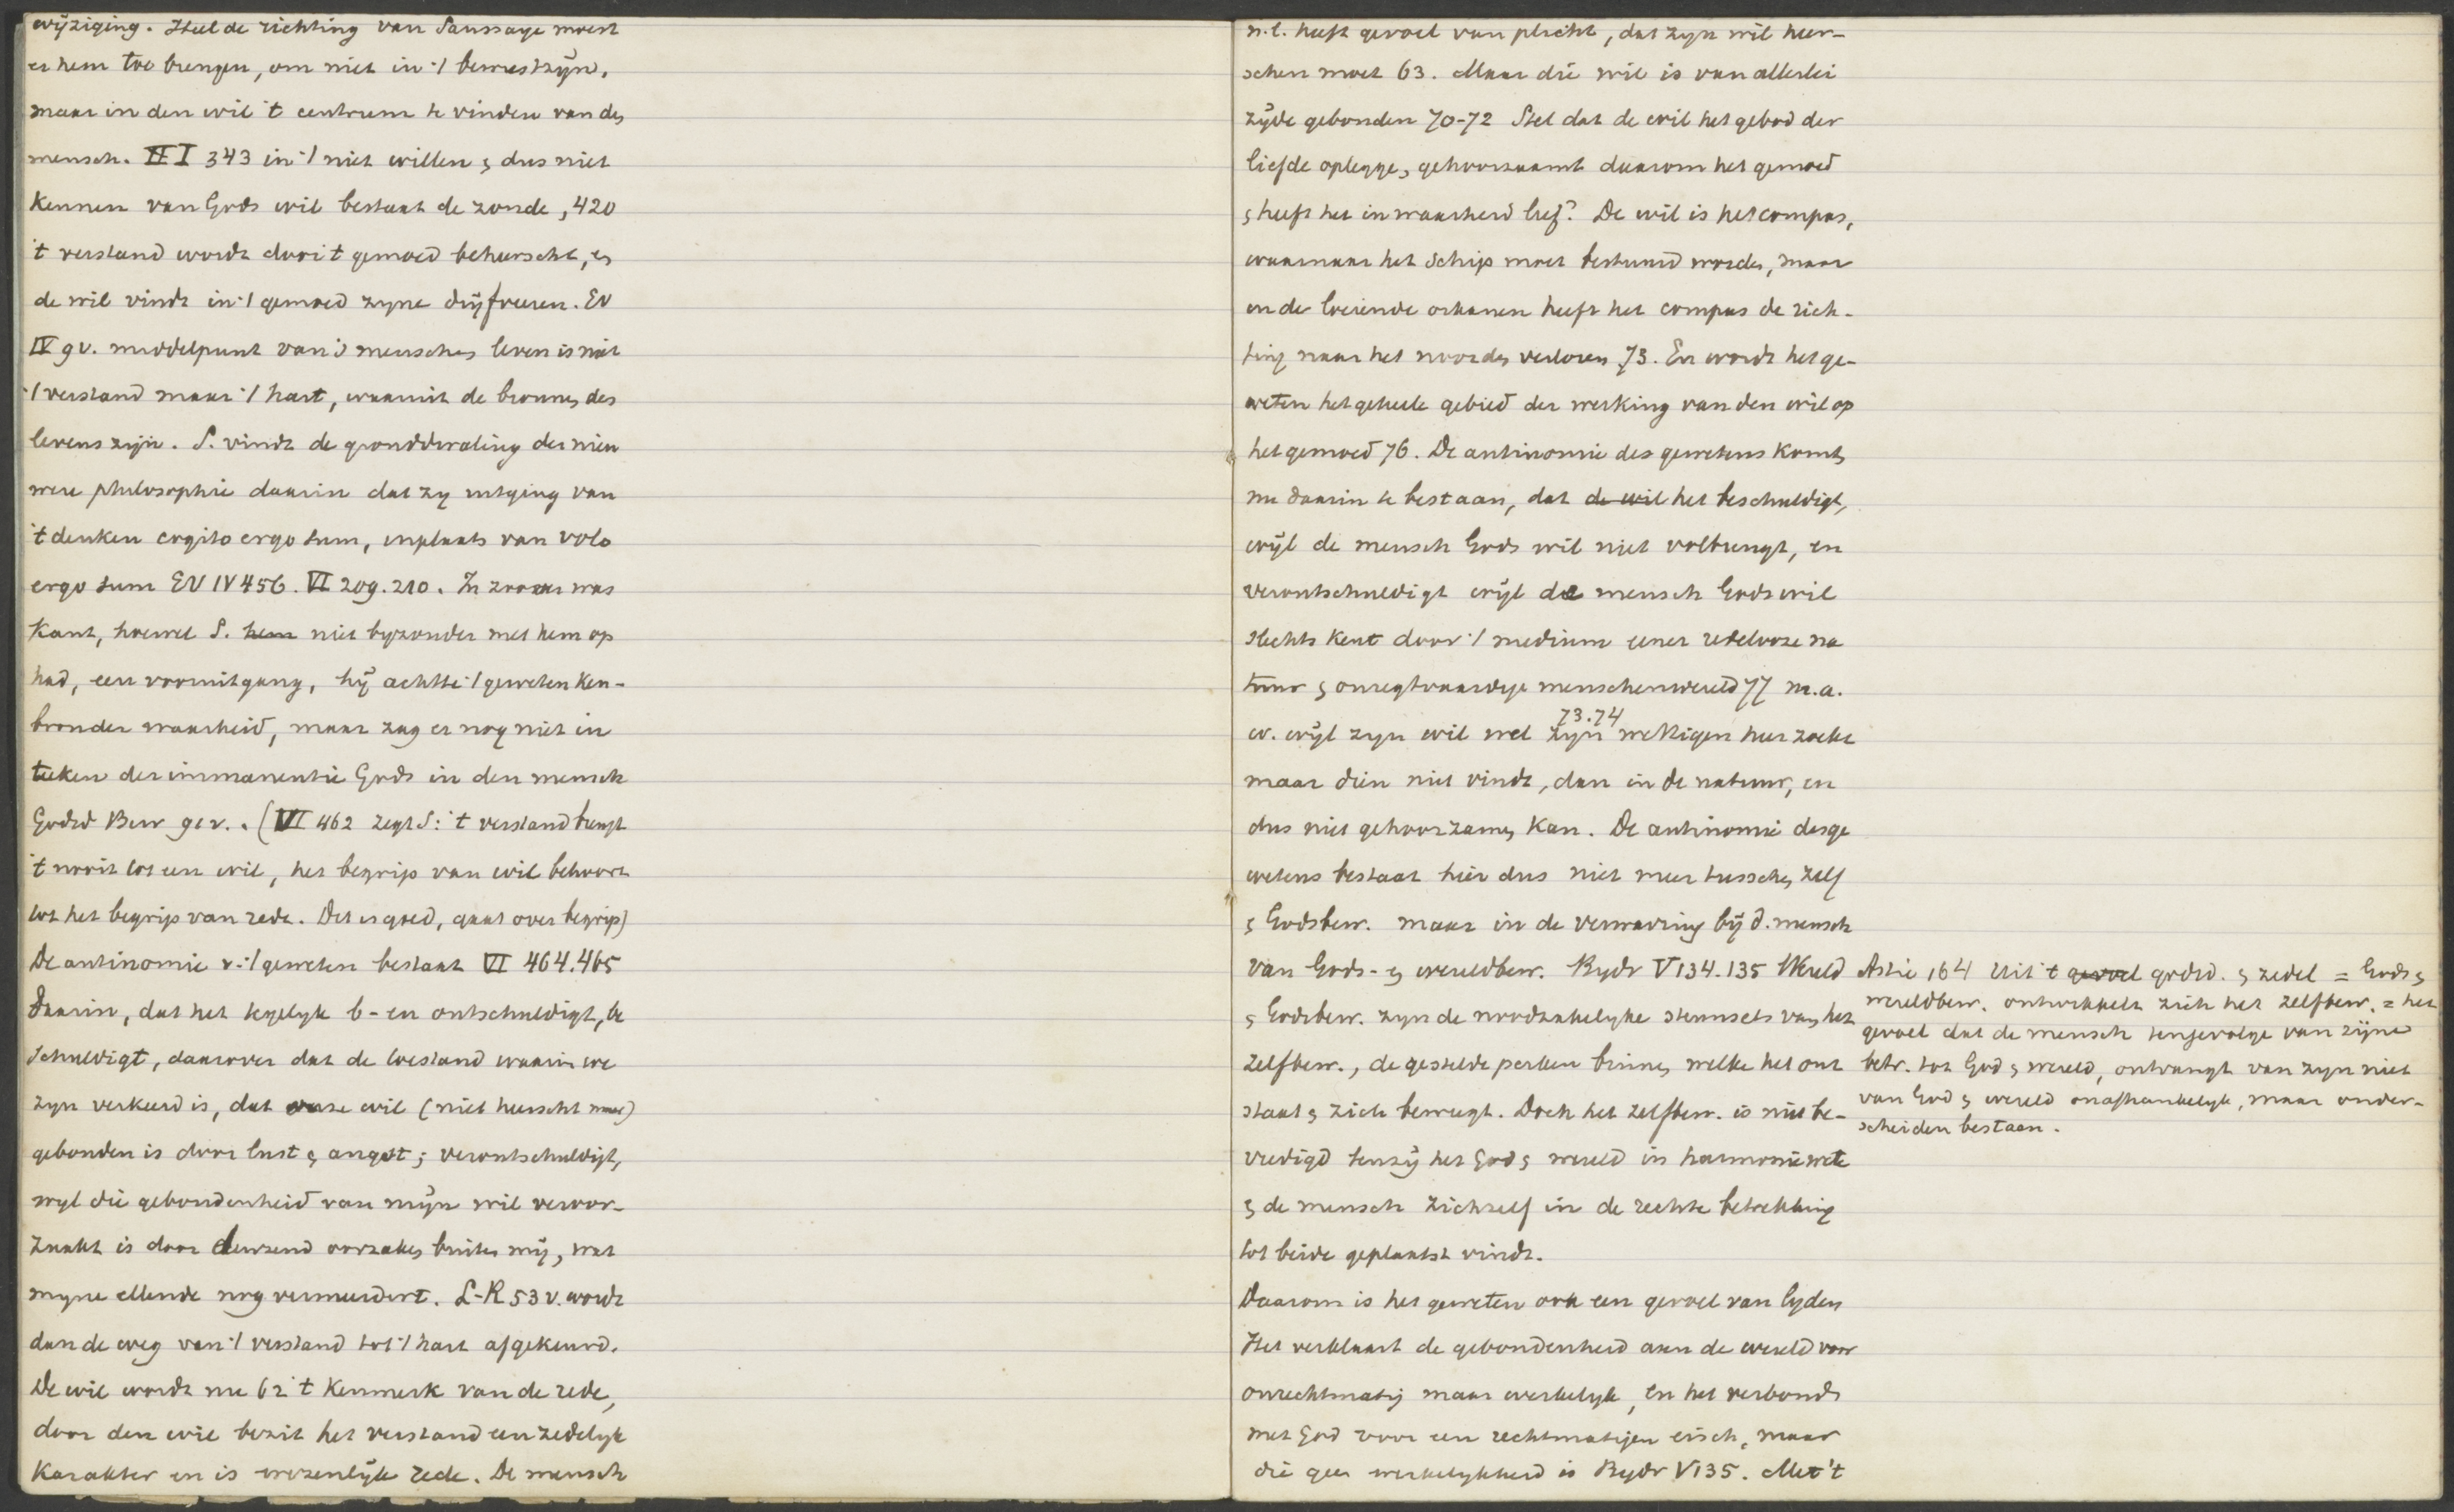 wijziging. Heel de richting van Saussaye moest
er hem toe brengen, om niet in 't bewustzijn,
maar in den wil 't centrum te vinden van den
mensch. I 343 in 't niet willen & dus niet
kennen van Gods wil bestaat de zonde, 420
't verstand wordt door 't gemoed beheerscht, en
de wil vindt in 't gemoed zyne dryfveeren. EV
IV 9 v. middelpunt van 's menschen leven is niet
't verstand maar 't hart, waaruit de bronnen des
levens zijn. S. vindt de gronddwaling der nieu
were philosophie daarin dat zy uitging van
't denken cogito ergo sum, inplaats van volo
ergo sum EV IV 456. VI 209. 210. In zoover was
Kant, hoewel S. hem niet byzonder met hem op
had, een vooruitgang, hij achtte 't geweten ken-
bron der waarheid, maar zag er nog niet in
teeken der immanentie Gods in den mensch
Godsd Bew 91 v.. (VI 462 zegt S: 't verstand brengt
't nooit tot een wil, het begrip van wil behoort
tot het begrip van rede. Dit is goed, gaat over begrip)
De antinomie v. 't geweten bestaat VI 464.465
daarin, dat het tegelyk b- en ontschuldigt, be
schuldigt, daarover dat de toestand waarin we
zyn verkeerd is, dat onze wil (niet heerscht maar)
gebonden is door lust & angst; verontschuldigt,
wyl die gebondenheid van mijn wil veroor-
zaakt is door duizend oorzaken buiten mij, wat
myne ellende nog vermeerdert. L-R 53 v. wordt
dan de weg van 't verstand tot 't hart afgekeurd.
De wil wordt nu 62 't kenmerk van de rede,
door den wil bezit het verstand een zedelyk
karakter en is wezenlijk rede. De mensch
n.l. heeft gevoel van plicht, dat zyn wil heer-
schen moet 63. Maar die wil is van allerlei
zijde gebonden 70-72 Stel dat de wil het gebod der
liefde oplegge, gehoorzaamt daarom het gemoed
& heeft het in waarheid lief? De wil is het compas,
waarnaar het schip moet bestuurd worden, maar
in de loeiende orkanen heeft het compas de rich-
ting naar het noorden verloren 73. En wordt het ge-
weten het geheele gebied der werking van den wil op
het gemoed 76. De antinomie des gewetens komt
nu daarin te bestaan, dat de wil het beschuldigt,
wijl de mensch Gods wil niet volbrengt, en
verontschuldigt wijl de mensch Gods wil
slechts kent door 't medium eener redelooze na
tuur & onregtvaardige menschenwereld 77 m.a.
73.74
w. wijl zyn wil wel zijn wettigen heer zoekt
maar dien niet vindt, dan in de natuur, en
dus niet gehoorzamen kan. De antinomie des ge
wetens bestaat hier dus niet meer tusschen zelf
& Godsbew. maar in de verwarring bij d. mensch
van Gods- en wereldbew. Bydr V 134.135 Wereld
& Godsbew. zyn de noodzakelyke steunsels van het
zelfbew., de gestelde perken binnen welke het ont
staat & zich beweegt. Doch het zelfbew. is niet be-
vredigd tenzij het God & wereld in harmonie wete
& de mensch zichzelf in de rechte betrekking
tot beide geplaatst vindt.
Daarom is het geweten ook een gevoel van lyden
Het verklaart de gebondenheid aan de wereld voor
onrechtmatig maar werkelyk, en het verbond
met God voor een rechtmatigen eisch, maar
die geen werkelykheid is Bydr V 135. Met 't
164 Uit 't gevoel godsd. & zedel = Gods &
wereldbew. ontwikkelt zich het zelfbew. = het
gevoel dat de mensch tengevolge van zijne
betr. tot God & wereld, ontvangt van zyn niet
van God & wereld onafhankelyk, maar onder-
scheiden bestaan.